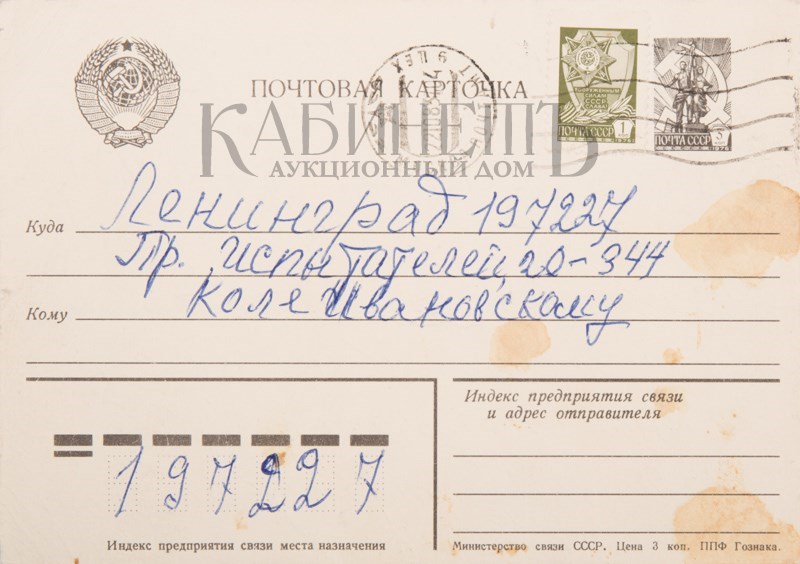 ПОЧТОВАЯ КАРТОЧКА
КАБИНЕТЪ
АУКЦИОННЫЙ ДОМ
ВООРУЖЕННЫЕ СИЛЫ СССР
ПОЧТА СССР 1
1976
ПОЧТА СССР 3
1976
Куда Ленинград 197227
Пр. Испытателей, 20-344
Кому Коле Ивановскому
Индекс предприятия связи
и адрес отправителя
197227
Индекс предприятия связи места назначения
Министерство связи СССР. Цена 3 коп. ППФ Гознака.